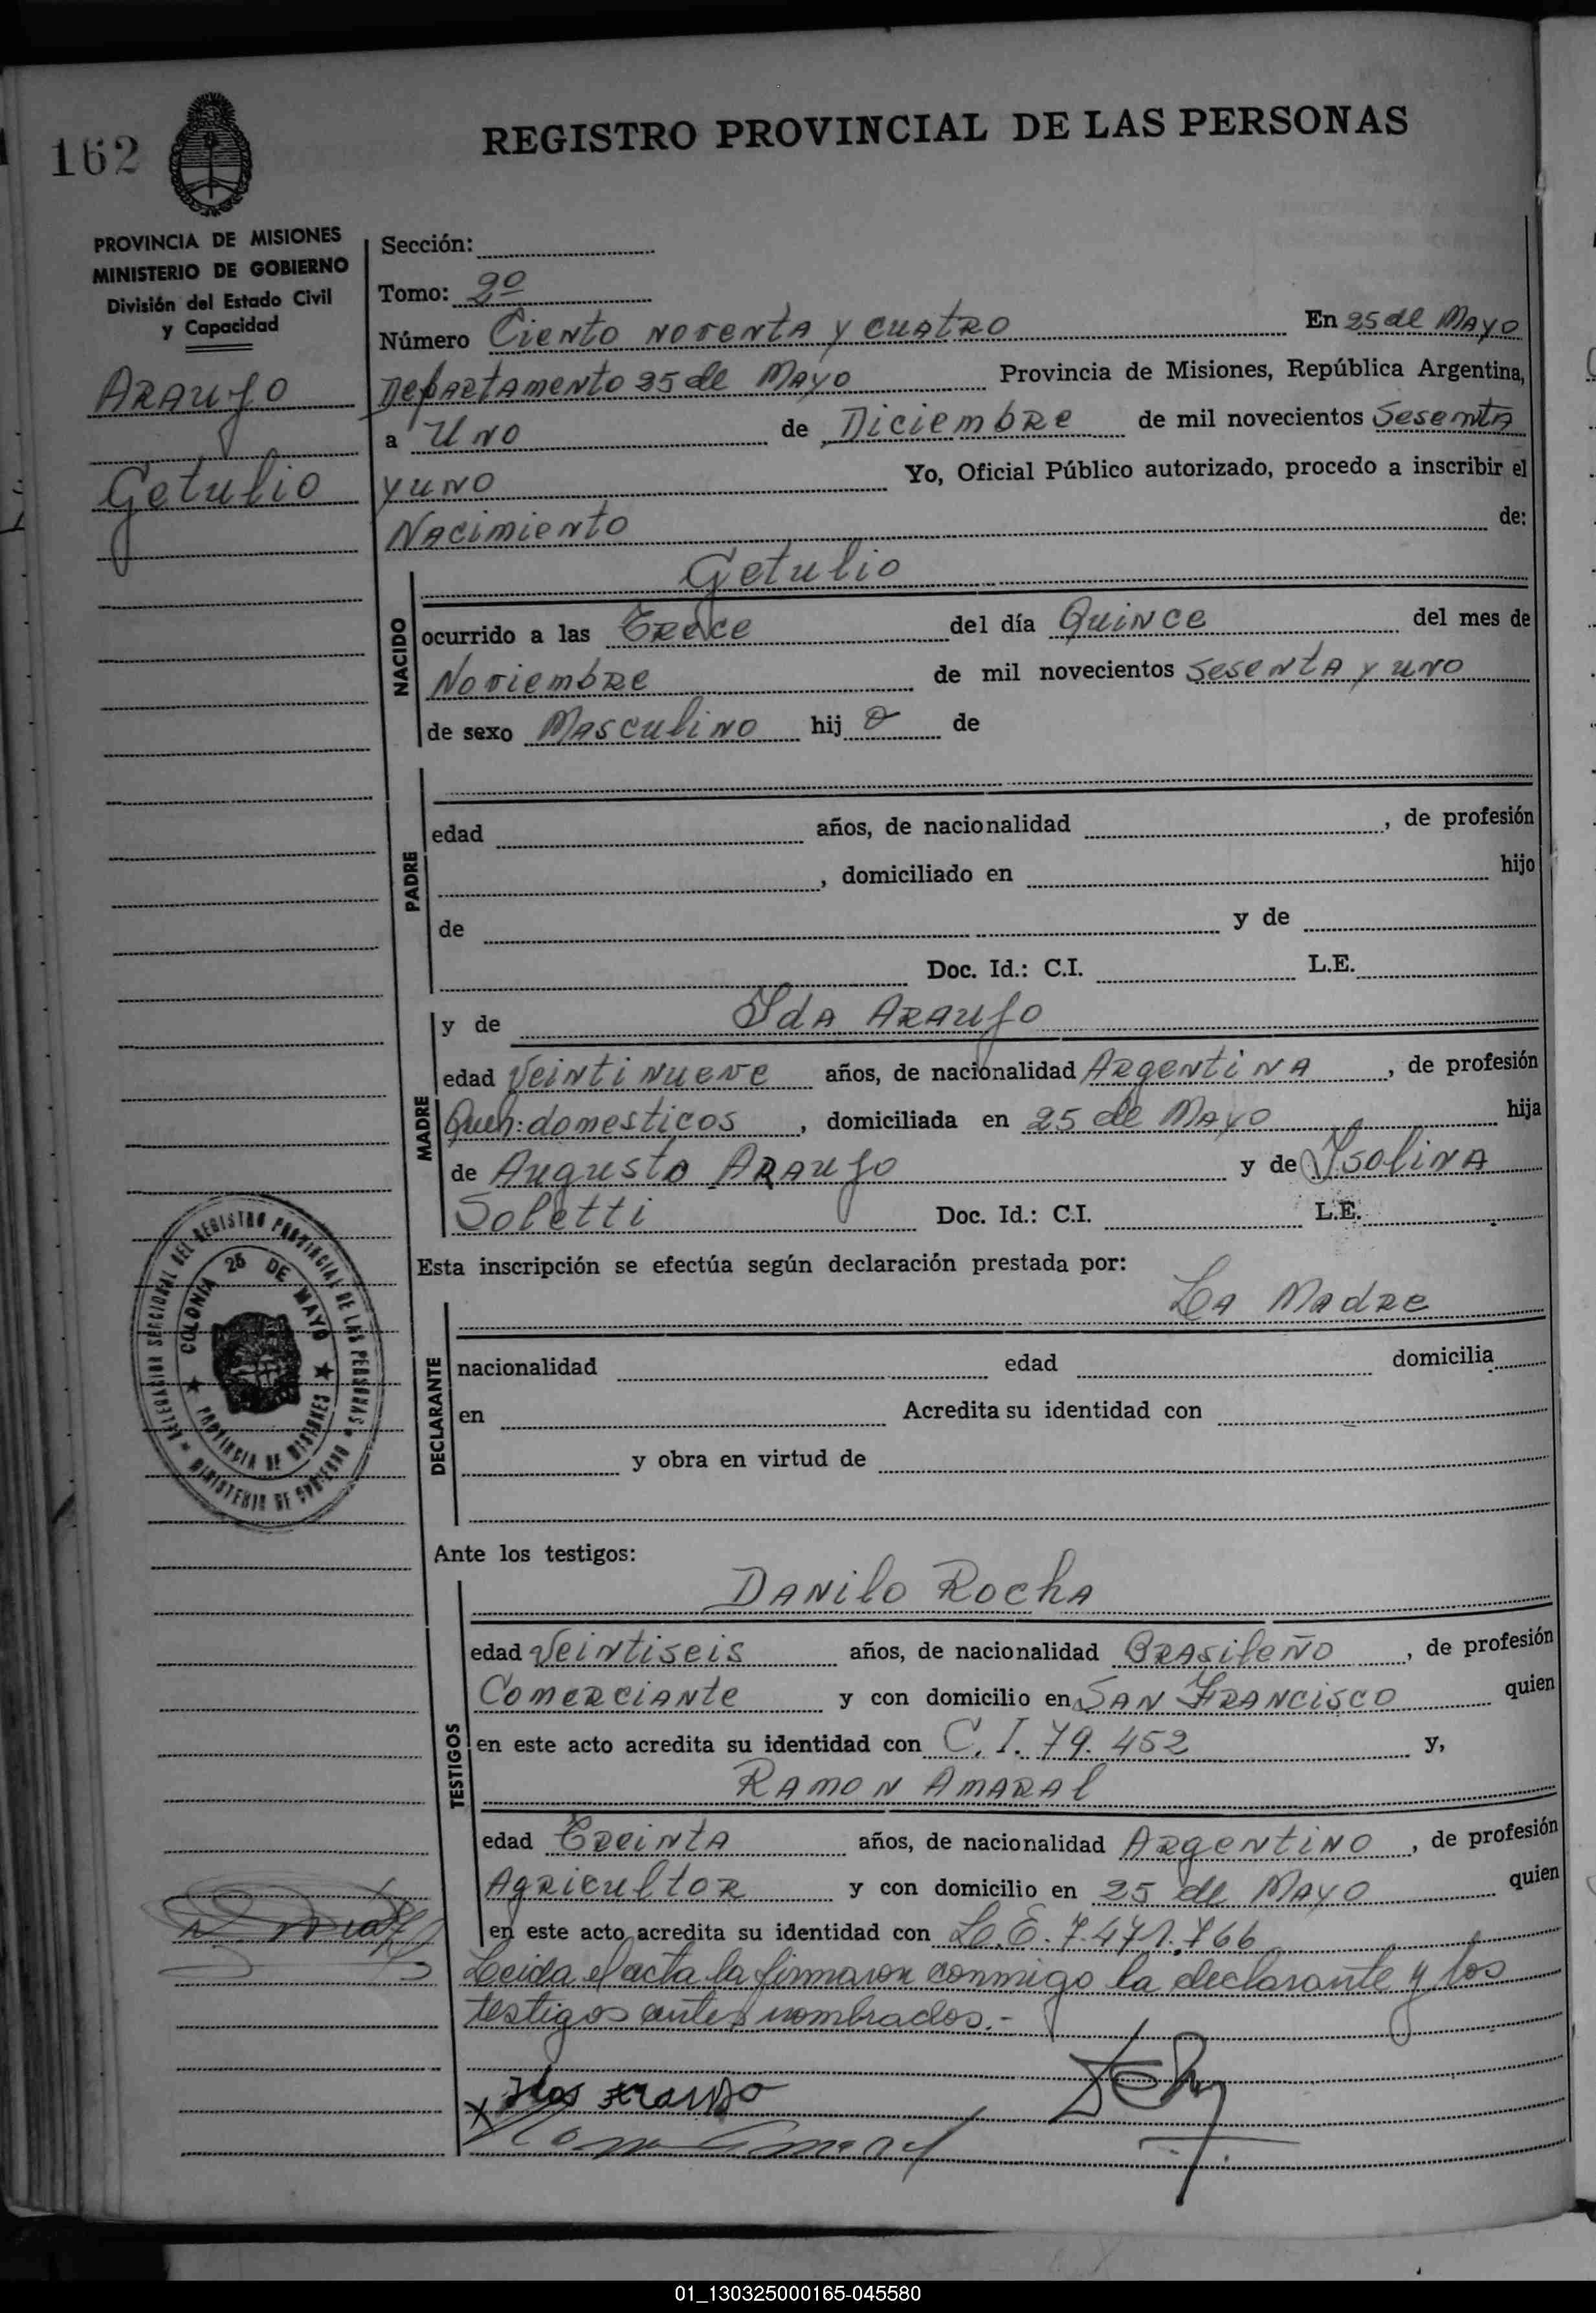 162
REGISTRO PROVINCIAL DE LAS PERSONAS
PROVINCIA DE MISIONES
MINISTERIO DE GOBIERNO
División del Estado Civil
y Capacidad
Araujo
Getulio
Sección:
Tomo: 2º
Número Ciento noventa y cuatro En 25 de Mayo
Departamento 25 de Mayo Provincia de Misiones, República Argentina,
a Uno de Diciembre de mil novecientos Sesenta
y uno Yo, Oficial Público autorizado, procedo a inscribir el
Nacimiento de:
Getulio
NACIDO
ocurrido a las Trece del día Quince del mes de
Noviembre de mil novecientos Sesenta y uno
de sexo Masculino hij o de
PADRE
edad años, de nacionalidad , de profesión
, domiciliado en hijo
de y de
Doc. Id.: C.I. L.E.
MADRE
y de Ida Araujo
edad Veintinueve años, de nacionalidad Argentina , de profesión
Queh: domesticos , domiciliada en 25 de Mayo hija
de Augusto Araujo y de Ysolina
Soletti Doc. Id.: C.I. L.E.
Esta inscripción se efectúa según declaración prestada por:
La Madre
DECLARANTE
nacionalidad edad domicilia
en Acredita su identidad con
y obra en virtud de
DELEGACION SECCIONAL DEL REGISTRO PROVINCIAL DE LAS PERSONAS
MINISTERIO DE GOBIERNO
COLONIA 25 DE MAYO
PROVINCIA DE MISIONES
Ante los testigos:
TESTIGOS
Danilo Rocha
edad Veintiseis años, de nacionalidad Brasileño , de profesión
Comerciante y con domicilio en San Francisco quien
en este acto acredita su identidad con C. I. 79.452 y,
Ramon Amaral
edad Treinta años, de nacionalidad Argentino , de profesión
Agricultor y con domicilio en 25 de Mayo quien
en este acto acredita su identidad con L.E. 7.471.766
Leida el acta la firmaron conmigo la declarante y los
testigos antes nombrados.-
01_130325000165-045580